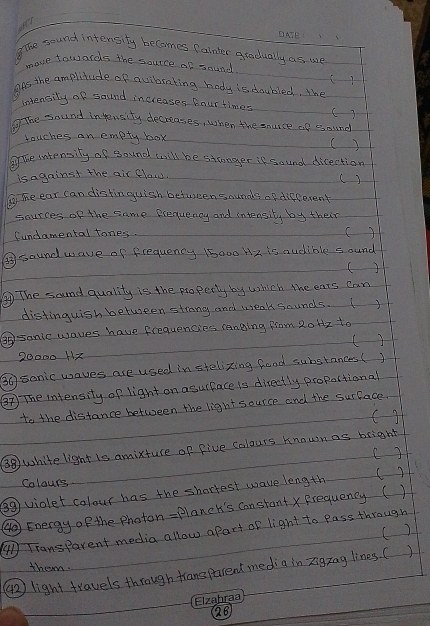 DATE
The sound intensity becomes fainter gradually as we
move towards the source of sound. ( )
As the amplitude of avibrating body is doubled, the
intensity of sound increases four times ( )
The sound intensity decreases, when the source of sound
touches an empty box ( )
The intensity of sound will be stronger if sound direction
is against the air flow. ( )
The ear can distinguish between sounds of different
sources of the same frequency and intensity by their
fundamental tones. ( )
(33) sound wave of frequency 15000 Hz is audible sound
( )
(34) The sound quality is the property by which the ears can
distinguish between strong and weak sounds. ( )
(35) sonic waves have frequencies ranging from 20 Hz to
20000 Hz ( )
(36) sonic waves are used in stelizing food substances ( )
(37) The intensity of light on a surface is directly proportional
to the distance between the light source and the surface.
( )
(38) white light is amixture of five colours known as bright
Colours. ( )
(39) violet colour has the shortest wave length ( )
(40) Energy of the Photon = Planck's Constant X frequency ( )
(41) Transparent media allow apart of light to Pass through
them. ( )
(42) light travels through transparent media in zigzag lines. ( )
Elzahraa
(26)